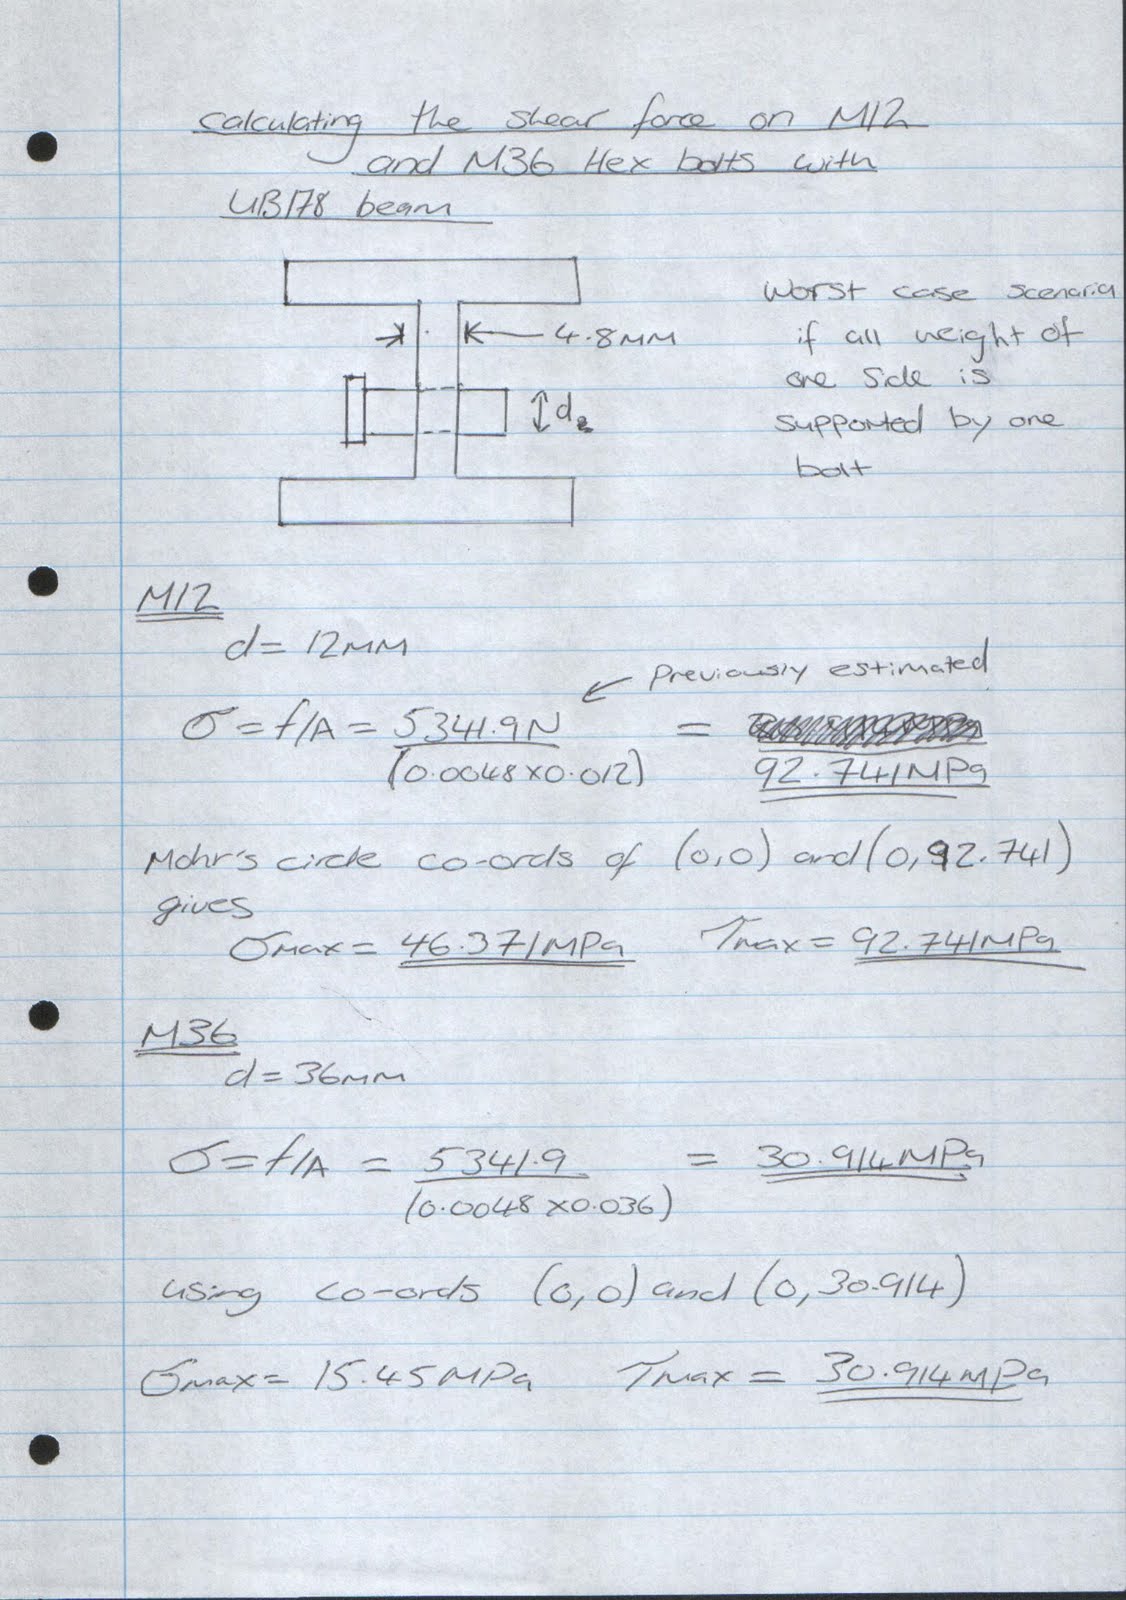 calculating the shear force on M12
and M36 Hex bolts with
UB178 beam
worst case scenario
if all weight of
one side is
supported by one
bolt
4.8MM
d
M12
d = 12MM
Previously estimated
σ = f/A = 5341.9N =
(0.0048 x 0.012) 92.741MPa
Mohr's circle co-ords of (0,0) and (0,92.741)
gives
σmax = 46.371MPa τmax = 92.741MPa
M36
d = 36mm
σ = f/A = 5341.9 = 30.914MPa
(0.0048 x 0.036)
using co-ords (0,0) and (0,30.914)
σmax = 15.45MPa τmax = 30.914MPa